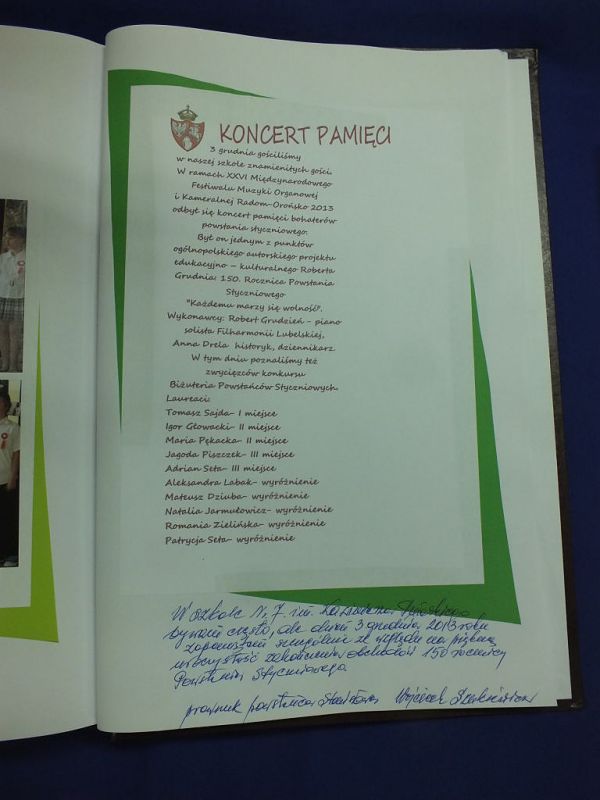 KONCERT PAMIĘCI
3 grudnia gościliśmy
w naszej szkole znamienitych gości.
W ramach XXVI Międzynarodowego
Festiwalu Muzyki Organowej
i Kameralnej Radom-Orońsko 2013
odbył się koncert pamięci bohaterów
powstania styczniowego.
Był on jednym z punktów
ogólnopolskiego autorskiego projektu
edukacyjno – kulturalnego Roberta
Grudnia: 150. Rocznica Powstania
Styczniowego
"Każdemu marzy się wolność".
Wykonawcy: Robert Grudzień - piano
solista Filharmonii Lubelskiej,
Anna Drela historyk, dziennikarz
W tym dniu poznaliśmy też
zwycięzców konkursu
Biżuteria Powstańców Styczniowych.
Laureaci:
Tomasz Sajda- I miejsce
Igor Głowacki- II miejsce
Maria Pękacka- II miejsce
Jagoda Piszczek- III miejsce
Adrian Seta- III miejsce
Aleksandra Labak- wyróżnienie
Mateusz Dziuba- wyróżnienie
Natalia Jarmułowicz- wyróżnienie
Romania Zielińska- wyróżnienie
Patrycja Seta- wyróżnienie
W szkole Nr 7 im.
bywam często, ale dzień 3 grudnia 2013 roku
szczególnie ze względu na piękną
uroczystość zakończenia obchodów 150 rocznicy
Powstania Styczniowego
prawnuk powstańca Stanisława Wojciech